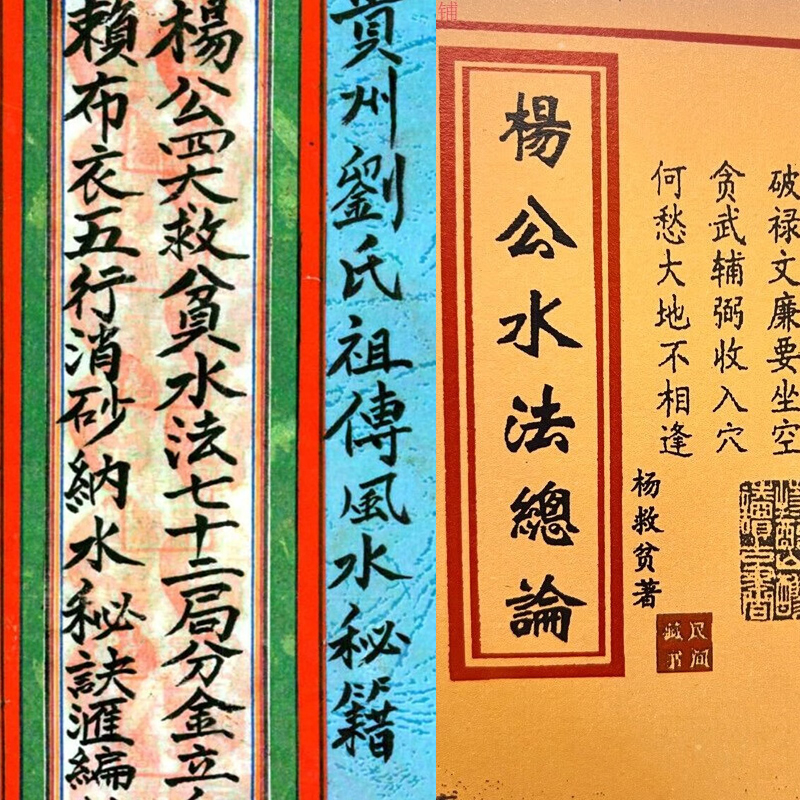 貴州劉氏祖傳風水秘籍
楊公四大救貧水法七十二局分金立
賴布衣五行消砂納水秘訣滙編
铺
破禄文廉要坐空
贪武辅弼收入穴
何愁大地不相逢
楊公水法總論
杨救贫著
民间
藏书